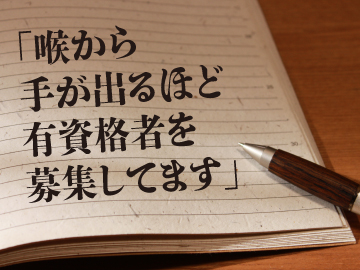 「喉から
手が出るほど
有資格者を
募集してます」